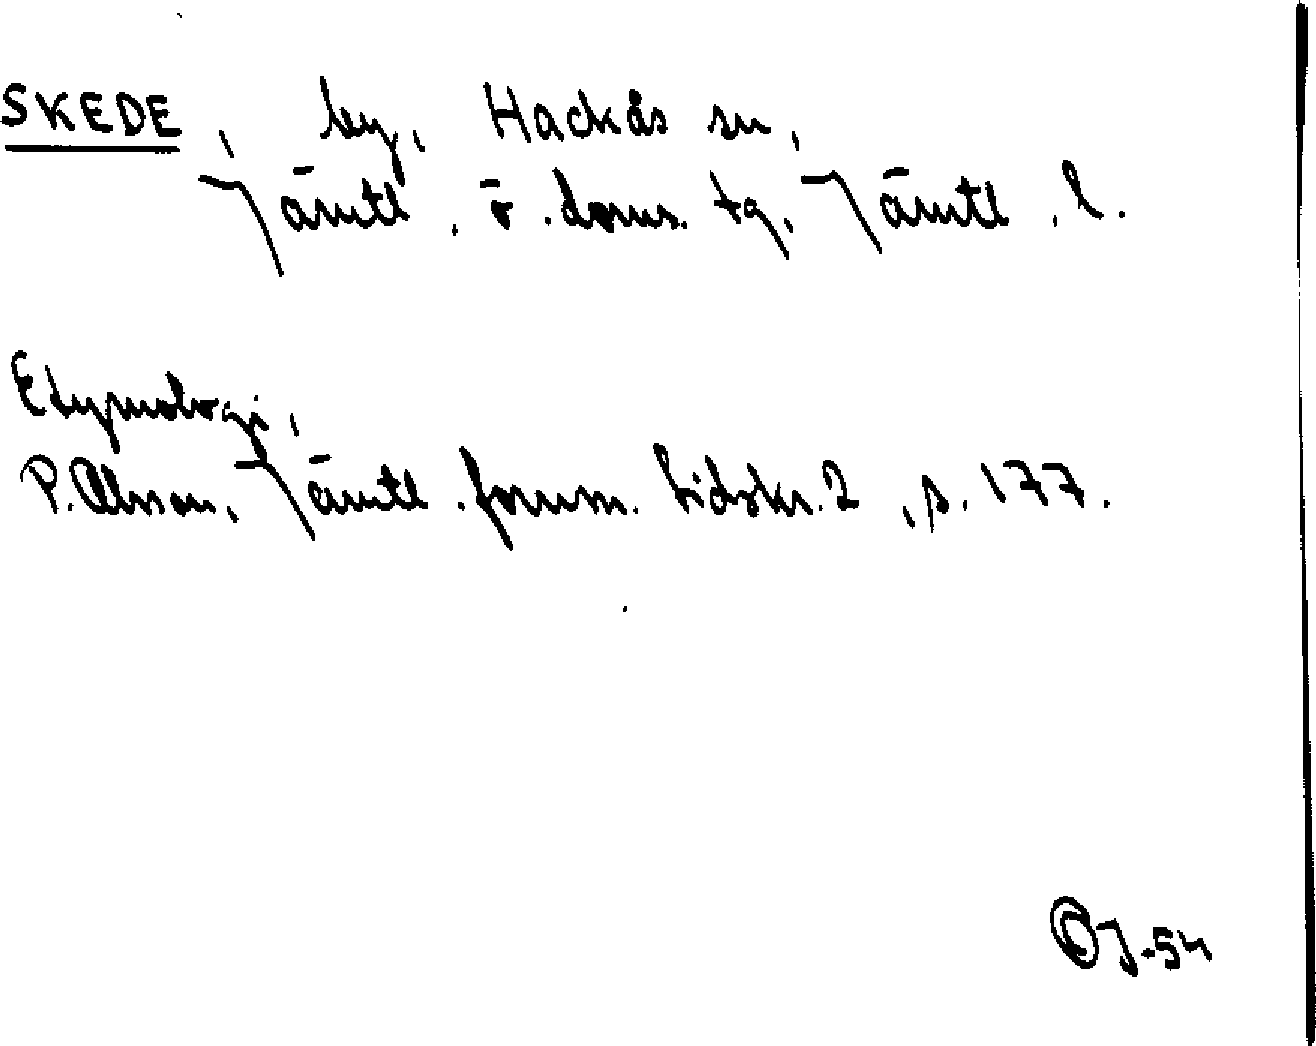 SKEDE, by, Hackås sn,
Jämtl. ö. doms. tg, Jämtl. l.
Etymologi,
P. Olsson, Jämtl. fornm. tidskr. 2, s. 177.
J-54